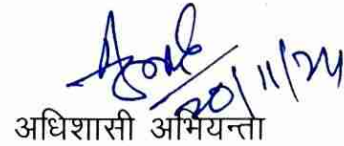 20/11/24
अधिशासी अभियन्ता